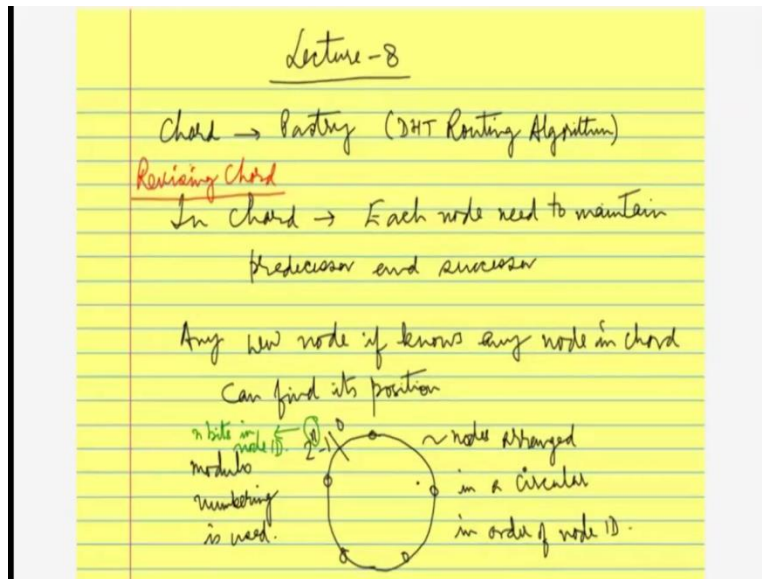 Lecture-8
Chord → Pastry (DHT Routing Algorithm)
Revising Chord
In Chord → Each node need to maintain
predecessor and successor
Any new node if knows any node in chord
can find its position
n bits in node ID. ← 2^n-1 0
modulo
numbering
is used.
~ nodes arranged
in a circular
in order of node ID.